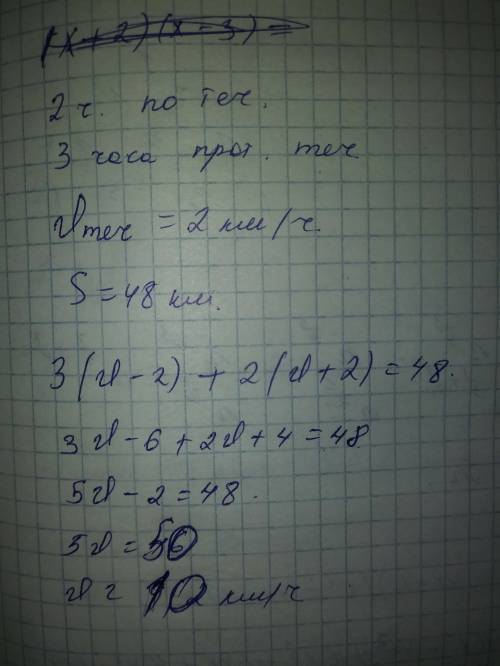 (x+2)(x-3)=
2 ч. по теч.
3 часа прот. теч
v теч = 2 км/ч.
S = 48 км.
3(v-2) + 2(v+2) = 48.
3v - 6 + 2v + 4 = 48
5v - 2 = 48.
5v = 50
v = 10 км/ч